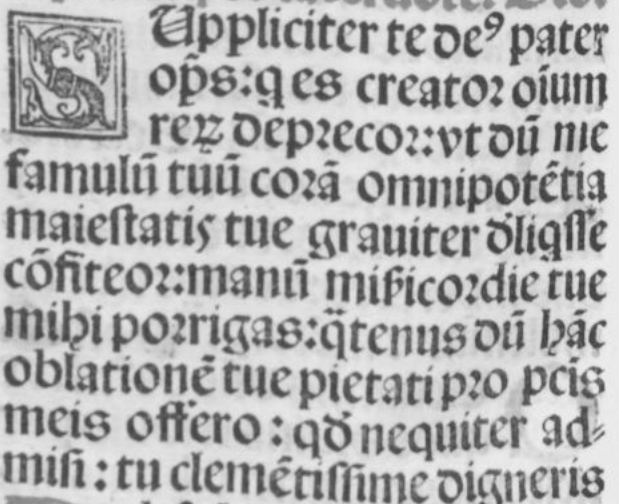 SUppliciter te deꝰ pater
op̄s: q es creator oīum
reꝝ deprecor: vt dū me
famulū tuū corā omnipotētia
maiestatis tue grauiter d̄liqſſe
cōfiteor: manū miẜicordie tue
mihi porrigas: q̄tenus dū hāc
oblationē tue pietati pro pctīs
meis offero: qd̄ nequiter ad⸗
misi: tu clemētissime digneris